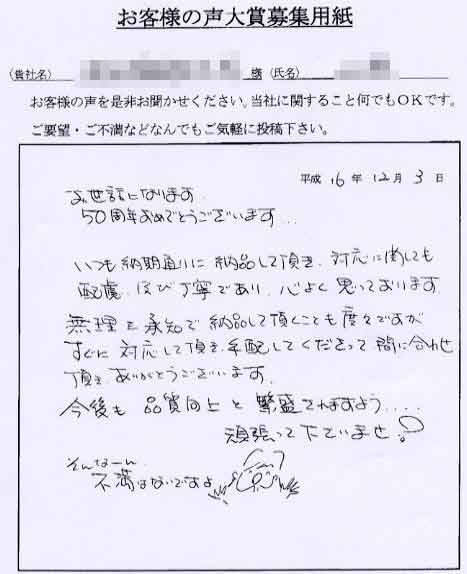 お客様の声大賞募集用紙
(貴社名) 様 (氏名)
お客様の声を是非お聞かせください。当社に関すること何でもOKです。
ご要望・ご不満などなんでもご気軽に投稿下さい。
平成 16 年 12 月 3 日
お世話になります
50周年おめでとうございます...
いつも納期通りに納品して頂き、対応に関しても
配慮、及び丁寧であり、心よく思っております
無理を承知で納品して頂くことも度々ですが
すぐに対応して頂き、手配してくださって間に合わせ
頂き、ありがとうございます。
今後も品質向上と繁盛されますよう....
頑張って下さいませ。
そんなーん
不満はないですよ